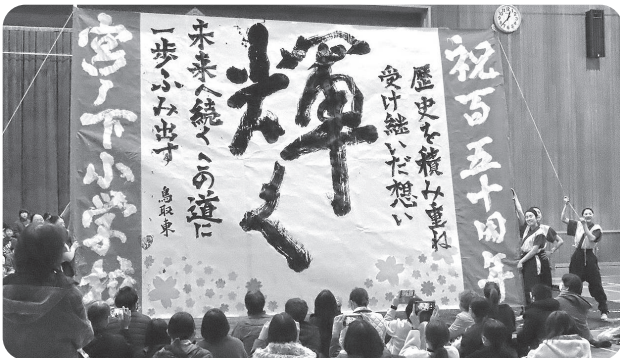 祝百五十周年
歴史を積み重ね
受け継いだ想い
輝く
未来へ続くこの道に
一歩ふみ出す
鳥取東
宮ノ下小学校